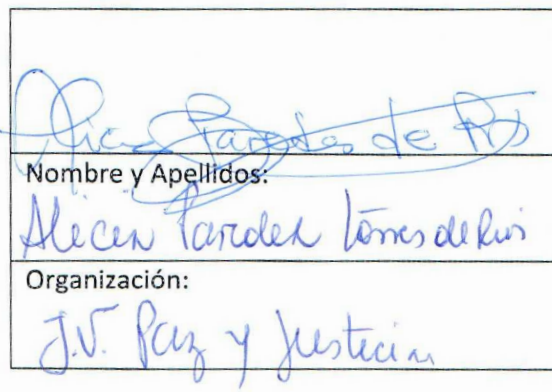 Alicia Paredes de Rios
Nombre y Apellidos:
Alicia Paredes Torres de Rios
Organización:
J.V. Paz y Justicia